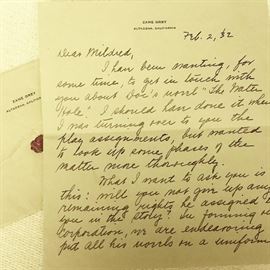 ZANE GREY
ALTADENA, CALIFORNIA
Feb. 2, '32
Dear Mildred,
I have been wanting, for
some time, to get in touch with
you about Doc's novel "The Water
Hole". I should have done it when
I was turning over to you the
play assignments, but wanted
to look up some phases of the
matter more thoroughly.
What I want to ask you is
this: will you not give up any
remaining rights he assigned to
you in the story? In forming
Corporation, we are endeavoring
put all his novels on a uniform
ZANE GREY
ALTADENA, CALIFORNIA